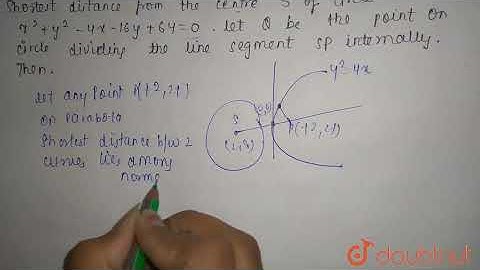 Shortest distance from the centre S of
x² + y² - 4x - 16y + 64 = 0 . let Q be the point on
circle dividing the line segment SP internally.
Then.
let any point P(t², 2t)
on Parabola
Shortest distance b/w 2
curves lies among
norma
y² = 4x
S
(2,8)
(t², 2t)
doubtnut